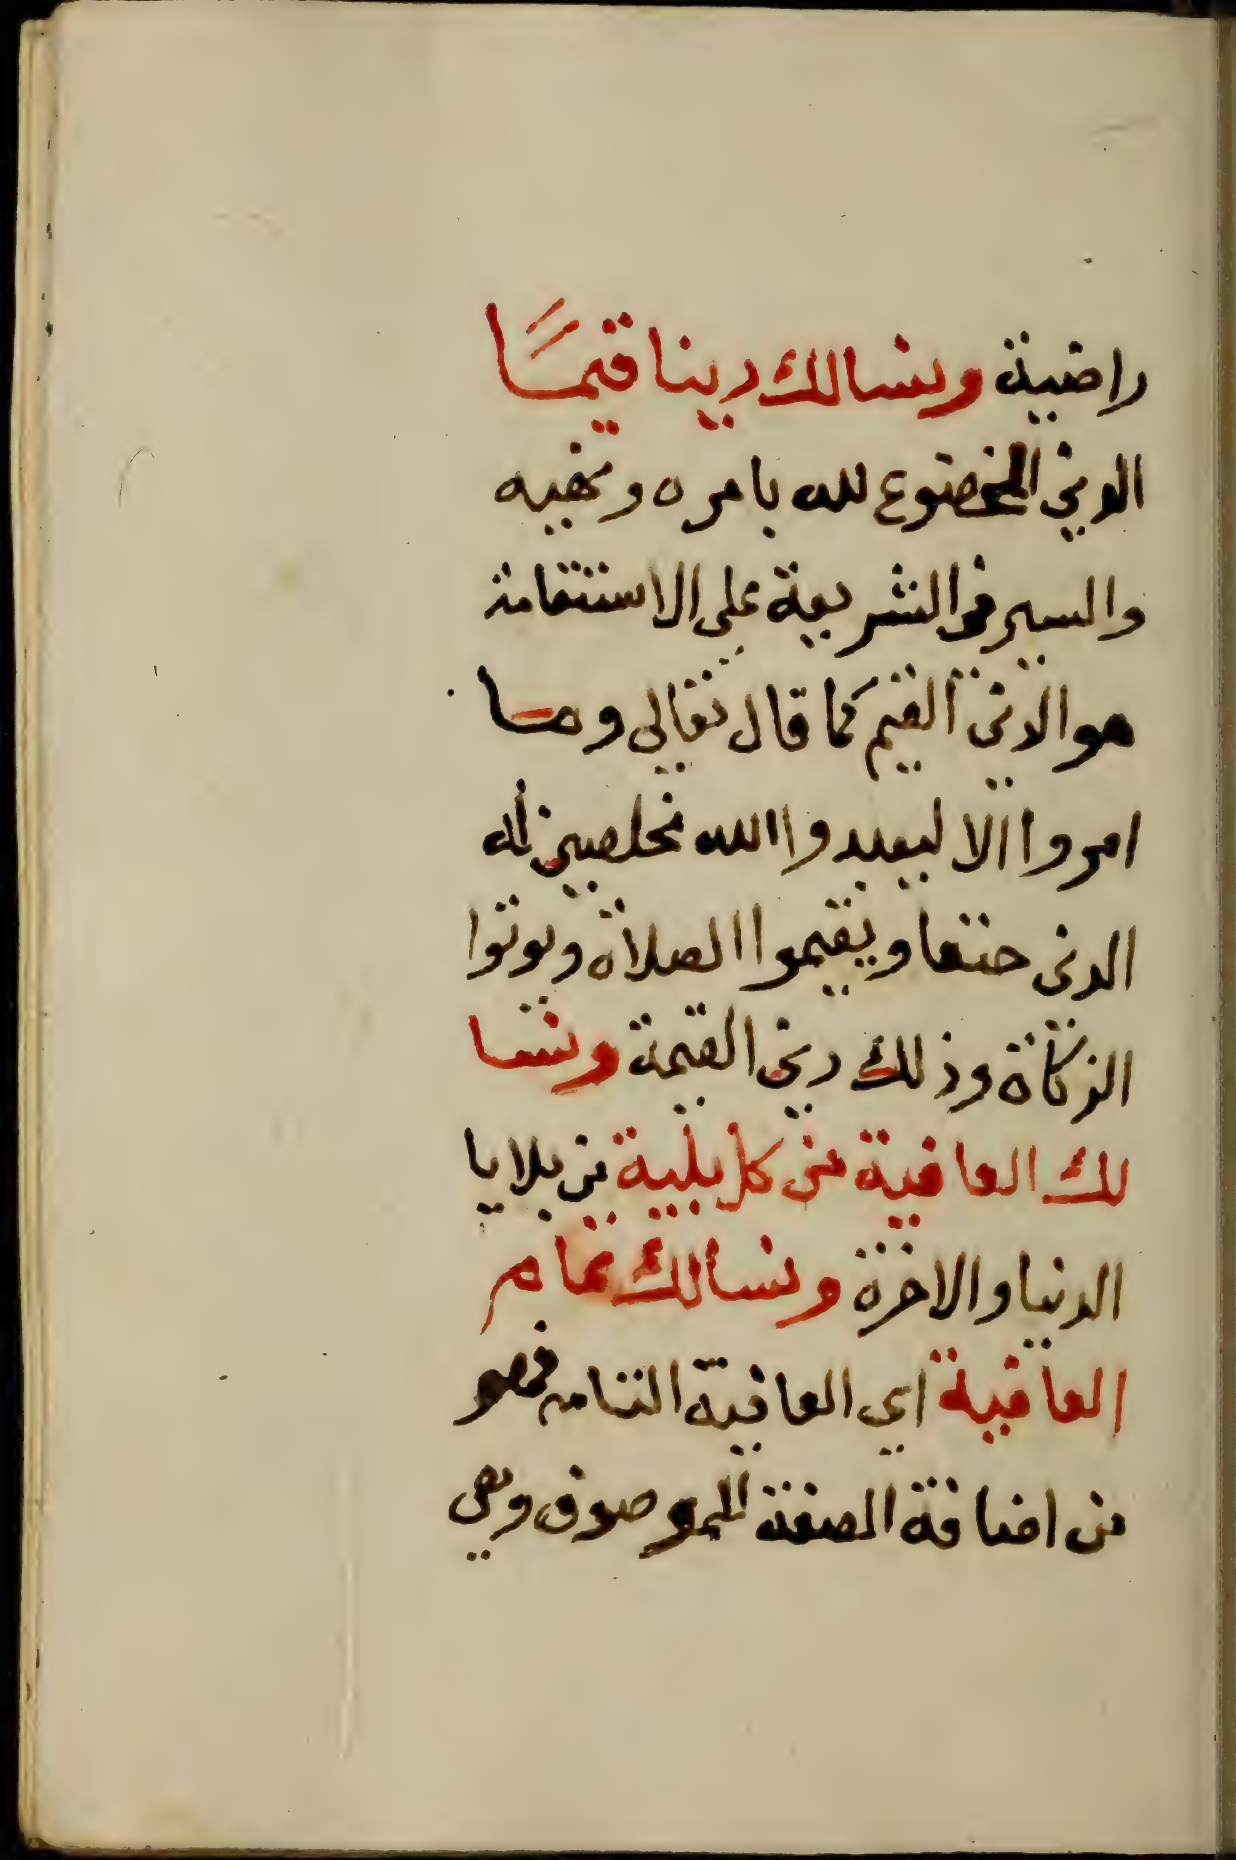 راضية ونسالك دينا قيمًا
الدين الخضوع لله بامره ونهيه
والسير في الشريعة على الاستقامة
هو الدين القيم كما قال تعالى وما
امروا الا ليعبدوا الله مخلصين له
الدين حنفا ويقيموا الصلاة ويوتوا
الزكاة وذلك دين القيمة ونسا
لك العافية من كل بلية من بلايا
الدنيا والاخرة ونسالك تمام
العافية اي العافية التامه فهو
من اضافة الصفة للموصوف وهي